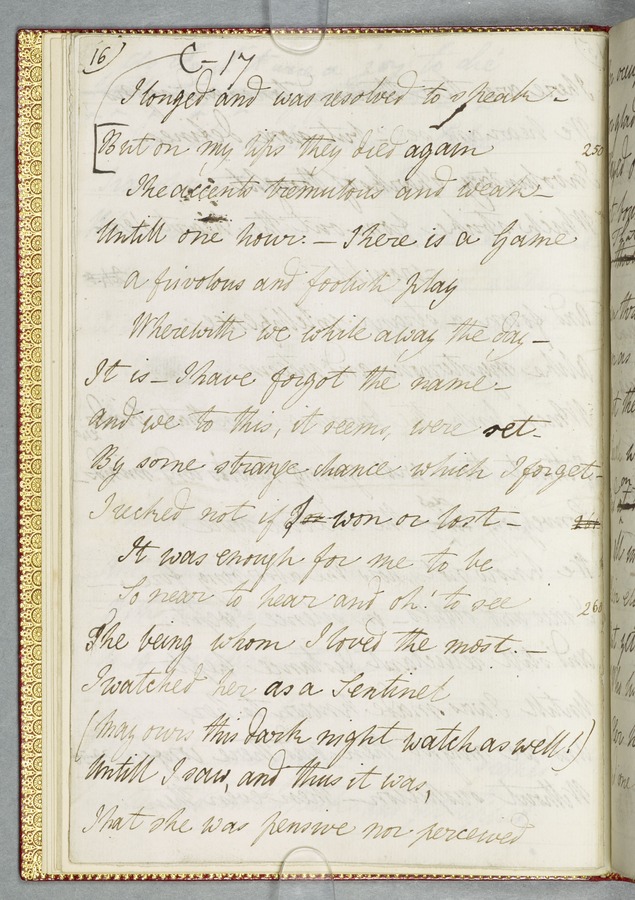 16)
C-17
I longed and was resolved to speak -
But on my lips they died again 250
The accents tremulous and weak -
Untill one hour. - There is a Game
a frivolous and foolish play
Wherewith we while away the day -
It is - I have forgot the name -
and we to this, it seems, were set -
By some strange chance which I forget -
I recked not if I won or lost -
It was enough for me to be
So near to hear and oh! to see 260
The being whom I loved the most. -
I watched her as a Sentinel
(May ours this dark night watch as well!)
Untill I saw, and thus it was,
That she was pensive nor perceived